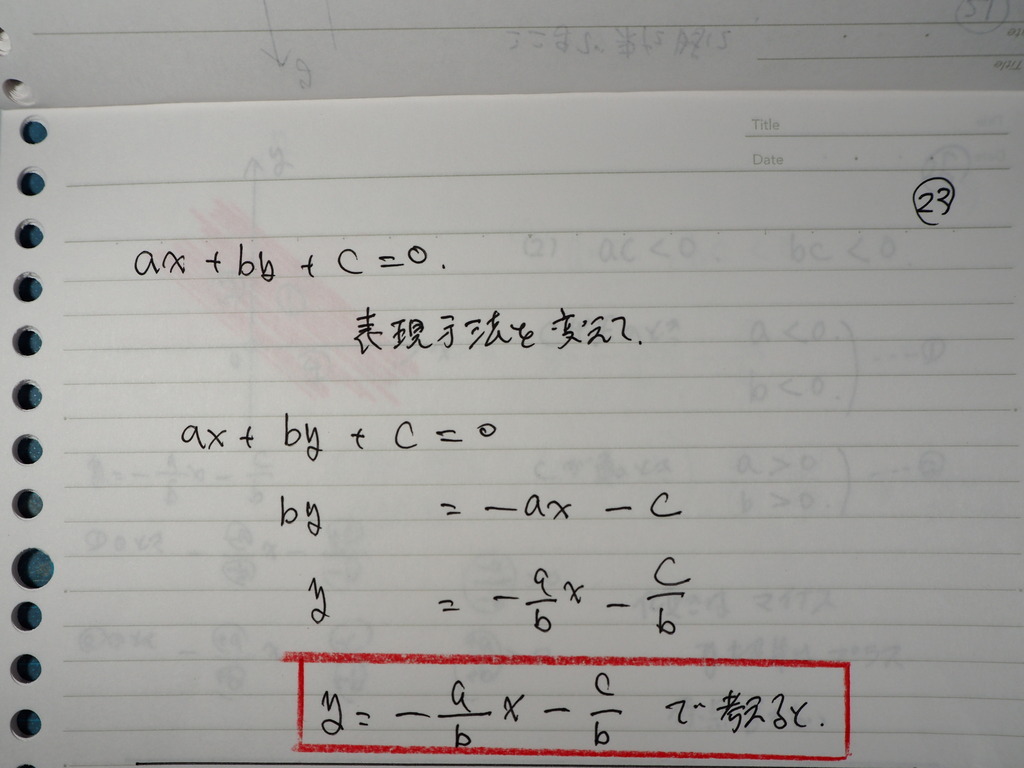 Title
Date
23
ax + by + c = 0.
表現方法を変えて.
ax + by + c = 0
by = -ax - c
y = -a/b x - c/b
y = -a/b x - c/b で考えると.